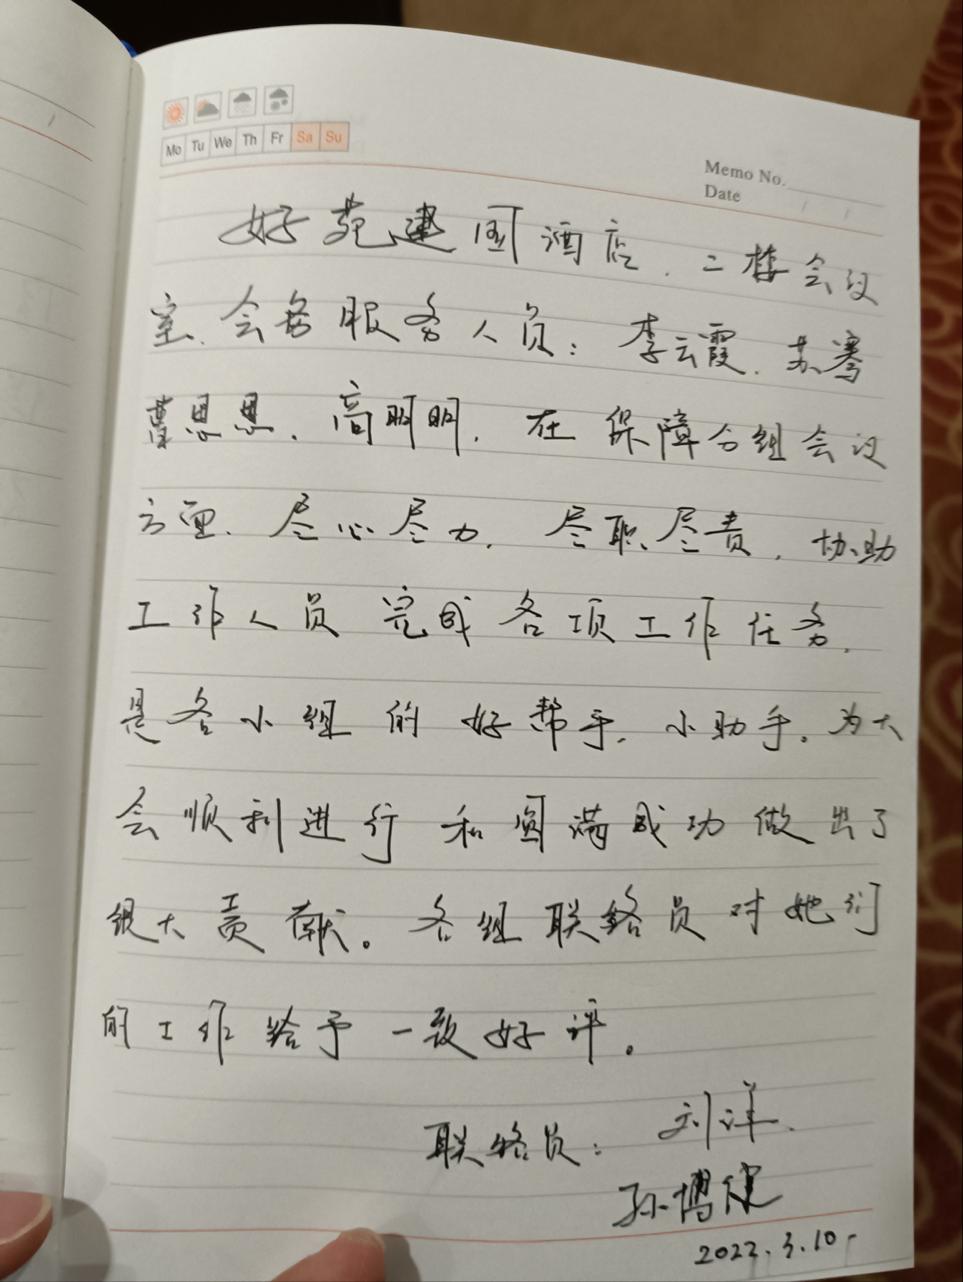 Mo Tu We Th Fr Sa Su
Memo No.
Date
好苑建国酒店、二楼会议
室、会务服务人员：李云霞、苏骞
曹思思、高明明，在保障分组会议
方面、尽心尽力，尽职尽责，协助
工作人员完成各项工作任务，
是各小组的好帮手，小助手。为大
会顺利进行和圆满成功做出了
很大贡献。各组联络员对她们
的工作给予一致好评。
联络员：刘洋、
孙博健
2022.3.10.